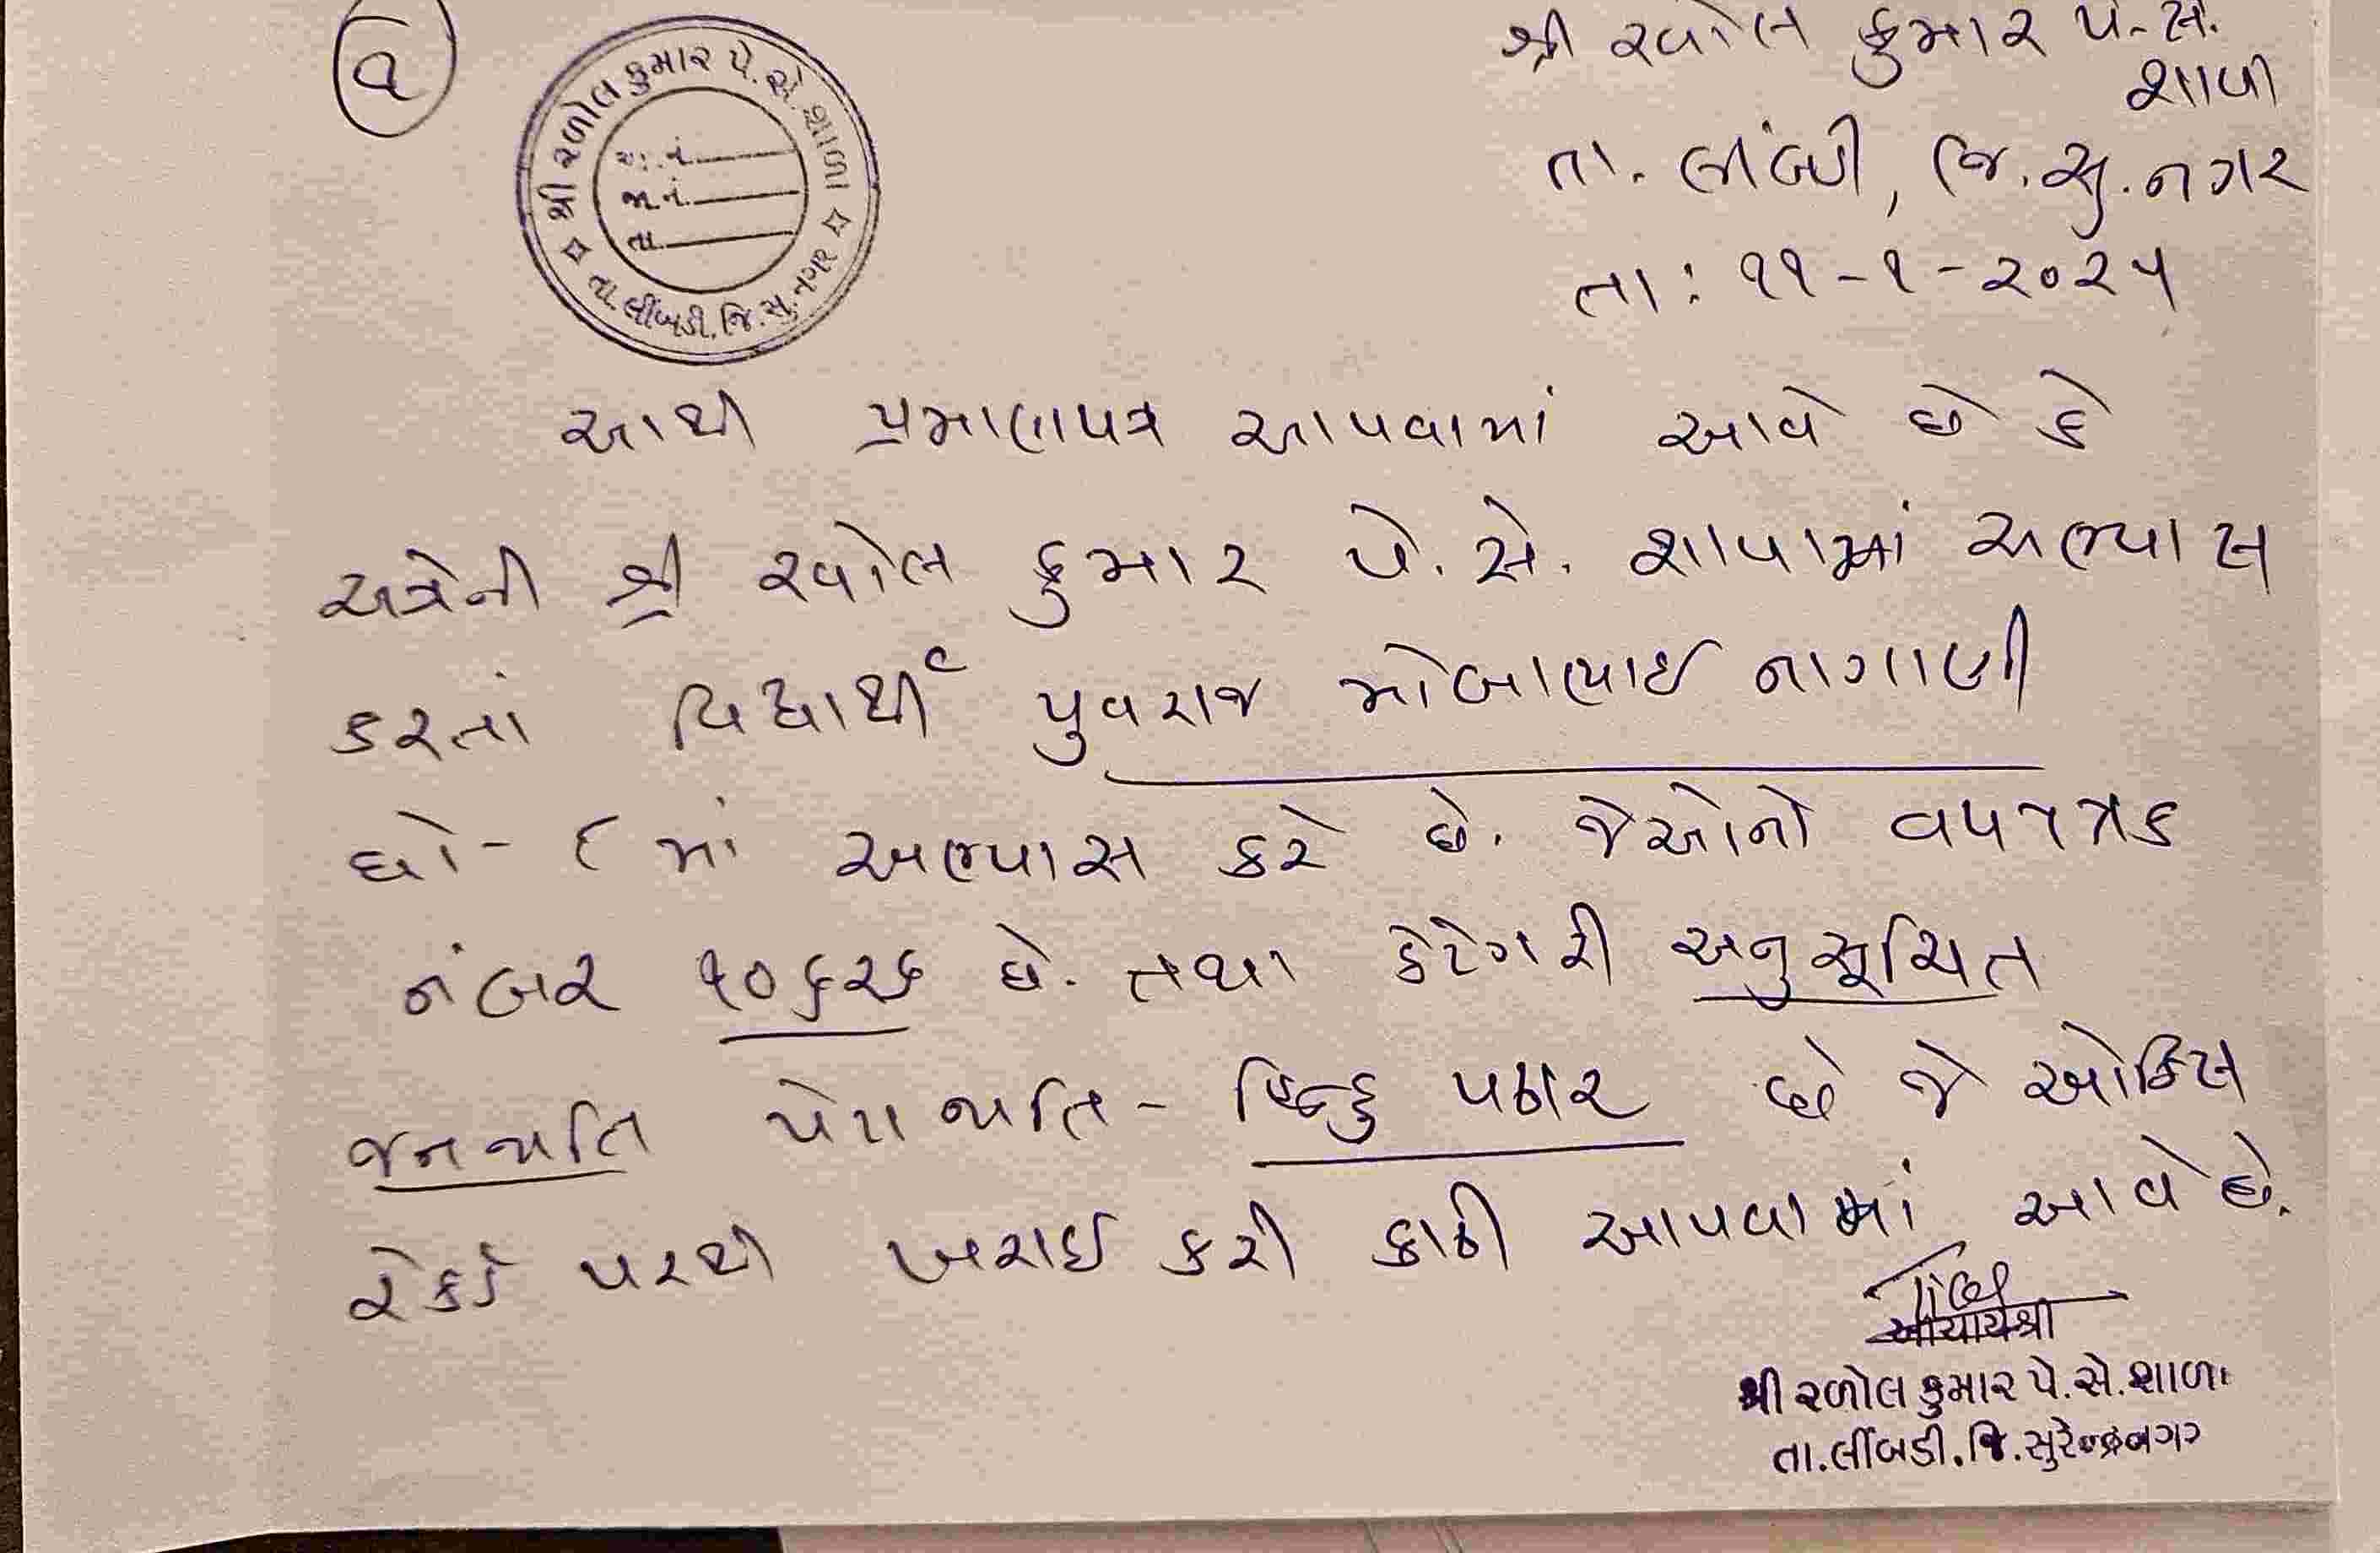 વ
શ્રી રળોલ કુમાર પે.સે.
શાળા
તા. લીંબડી, જિ. સુ.નગર
તા: ૧૧-૧-૨૦૨૫
શ્રી રળોલ કુમાર પે.સે. શાળા
આ.નં.
જા.નં.
તા.
તા. લીંબડી. જિ. સુ. નગર
આથી પ્રમાણપત્ર આપવામાં આવે છે કે
અત્રેની શ્રી રળોલ કુમાર પે. સે. શાળામાં અભ્યાસ
કરતાં વિદ્યાર્થી યુવરાજ મોબાભાઈ નાગાણી
ધો- ૮ માં અભ્યાસ કરે છે. જેઓનો વયપત્રક
નંબર ૧૦૬૨૬ છે. તથા કેટેગરી અનુસૂચિત
જનજાતિ પેટા જાતિ - હિન્દુ પઢાર છે જે ઓફિસ
રેકર્ડ પરથી ખરાઈ કરી કાઢી આપવામાં આવે છે.
આચાર્યશ્રી
શ્રી રળોલ કુમાર પે.સે.શાળા
તા.લીંબડી.જિ.સુરેન્દ્રનગર